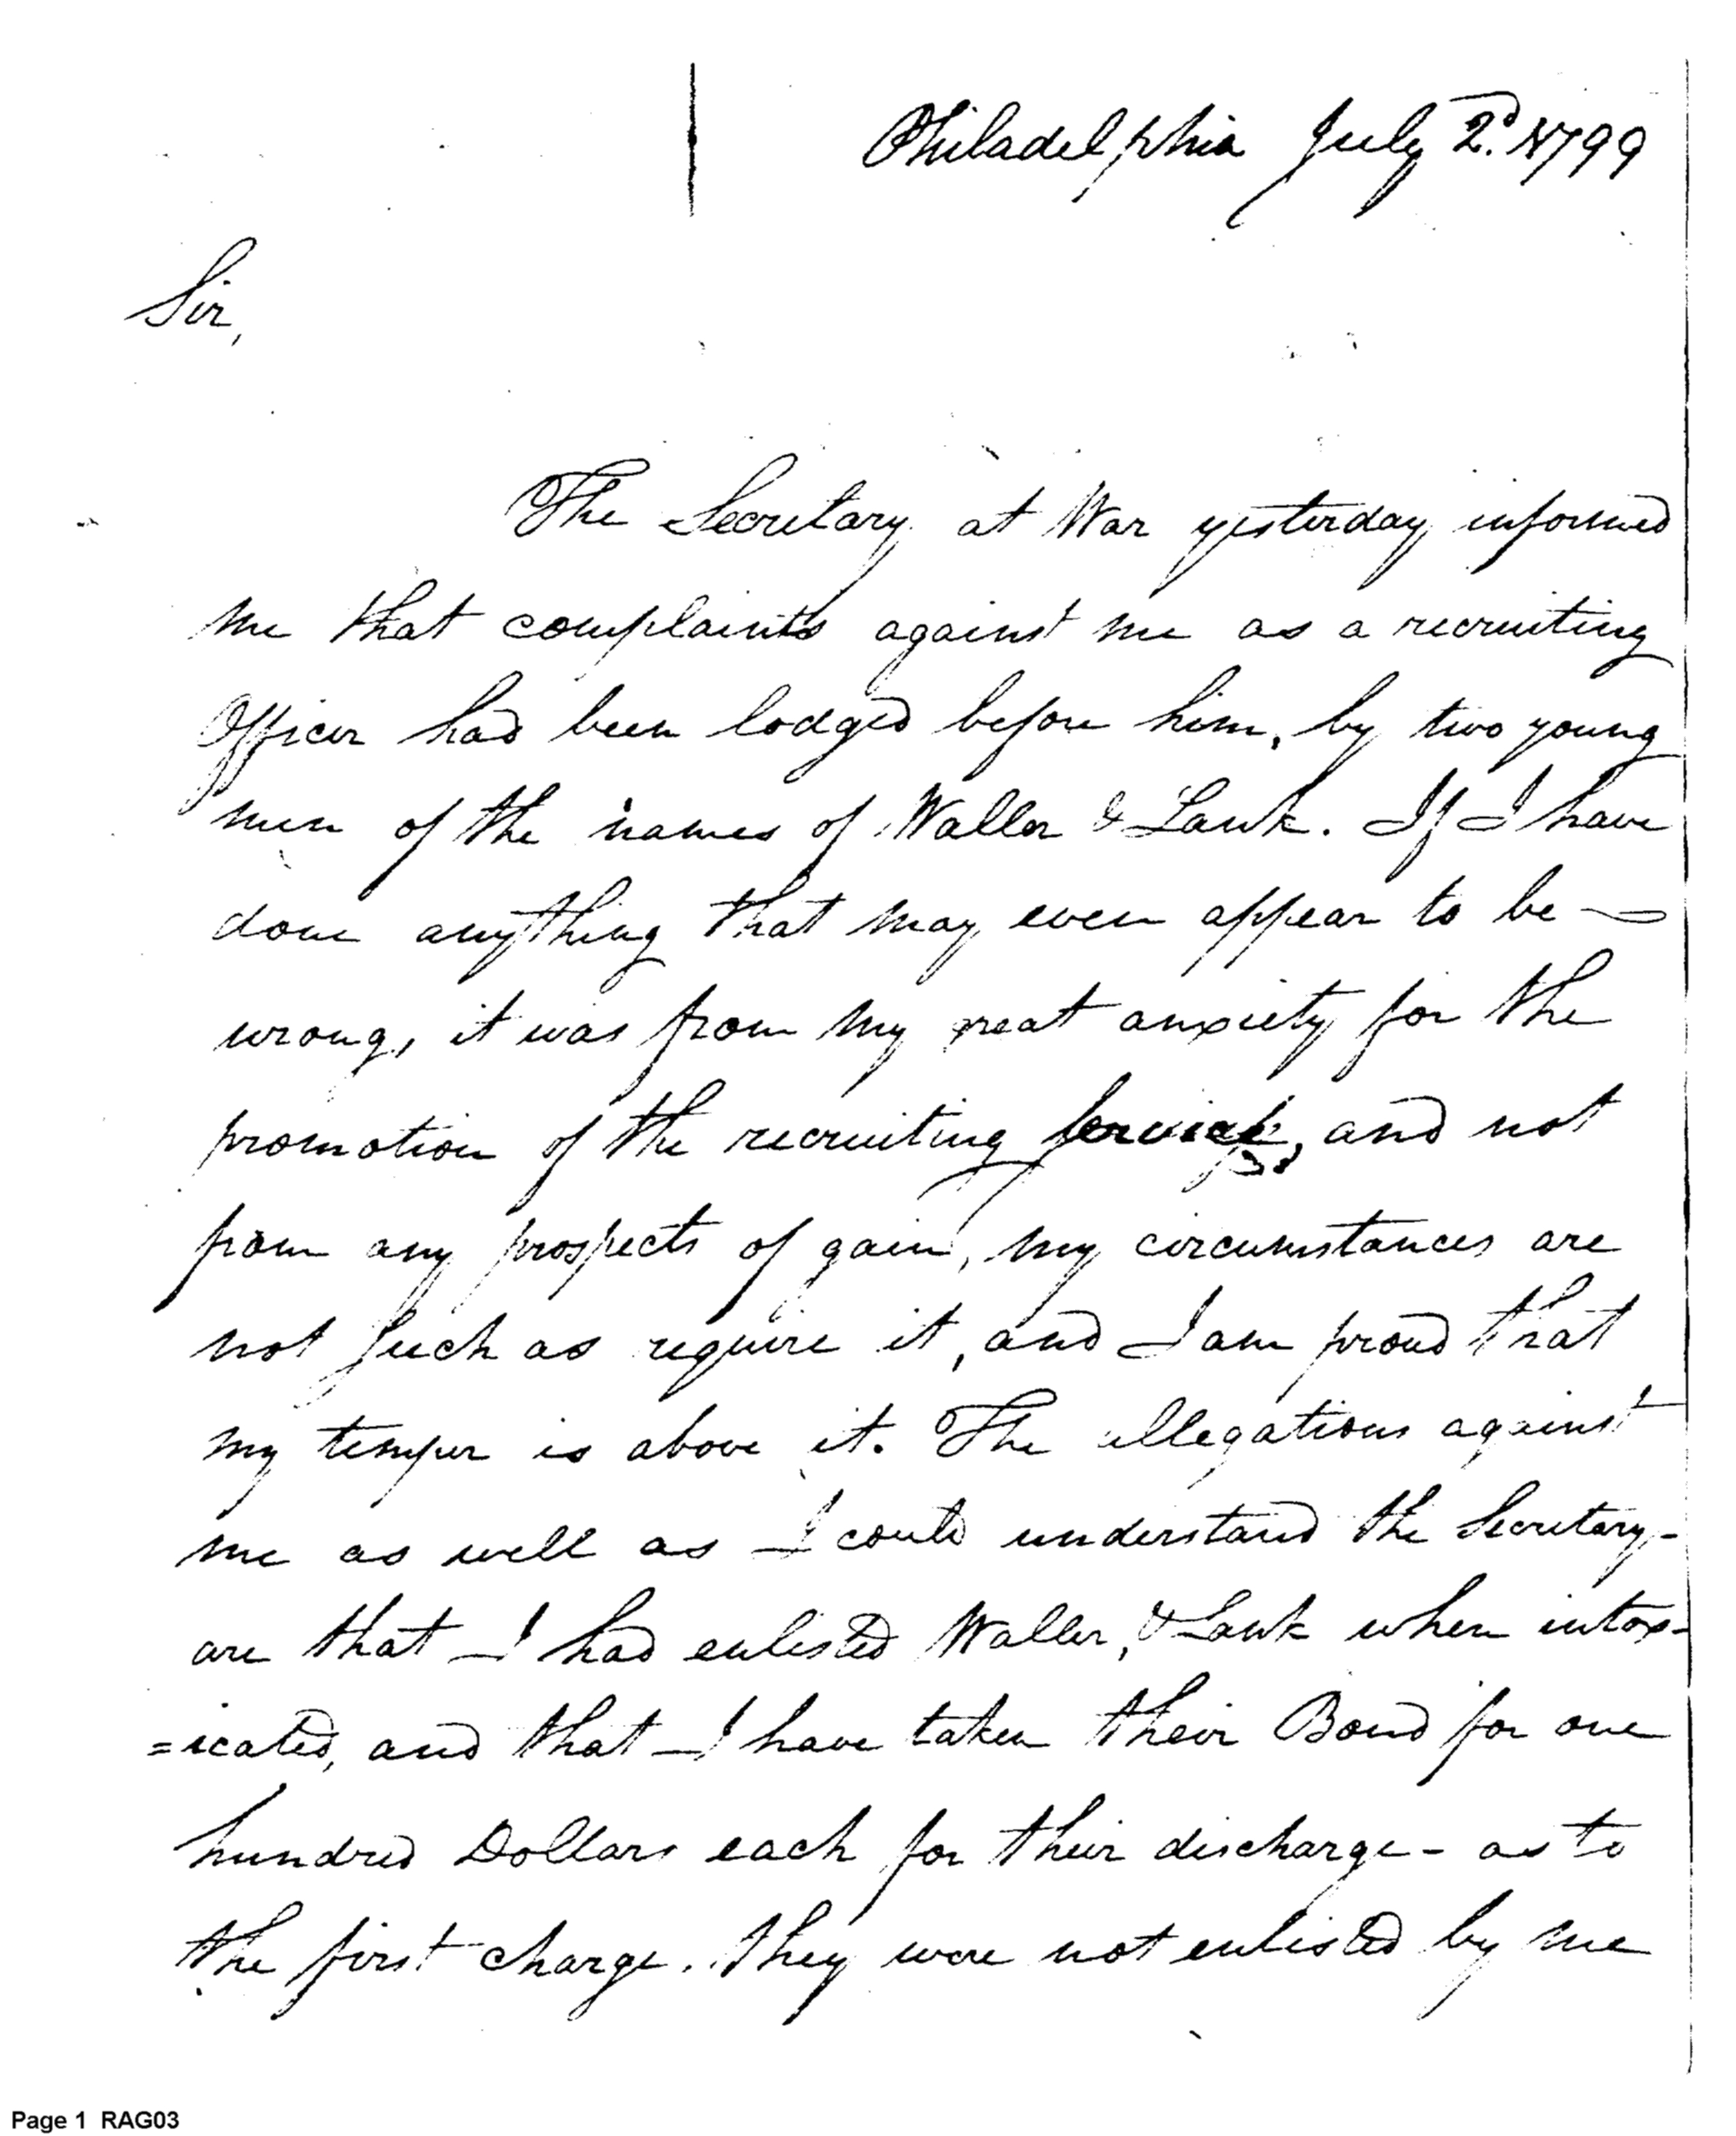 Philadelphia July 2d. 1799
Sir,
The Secretary at War yesterday informed
me that complaints against me as a recruiting
Officer had been lodged before him, by two young
men of the names of Waller & Lawk. If I have
done anything that may even appear to be —
wrong, it was from my great anxiety for the
promotion of the recruiting service, and not
from any prospects of gain, my circumstances are
not such as require it, and I am proud that
my temper is above it. The allegations against
me as well as I could understand the Secretary-
are that I had enlisted Waller, & Lawk when intox-
=icated, and that I have taken their Bond for one
hundred Dollars each for their discharge - as to
the first charge. they were not enlisted by me
Page 1 RAG03